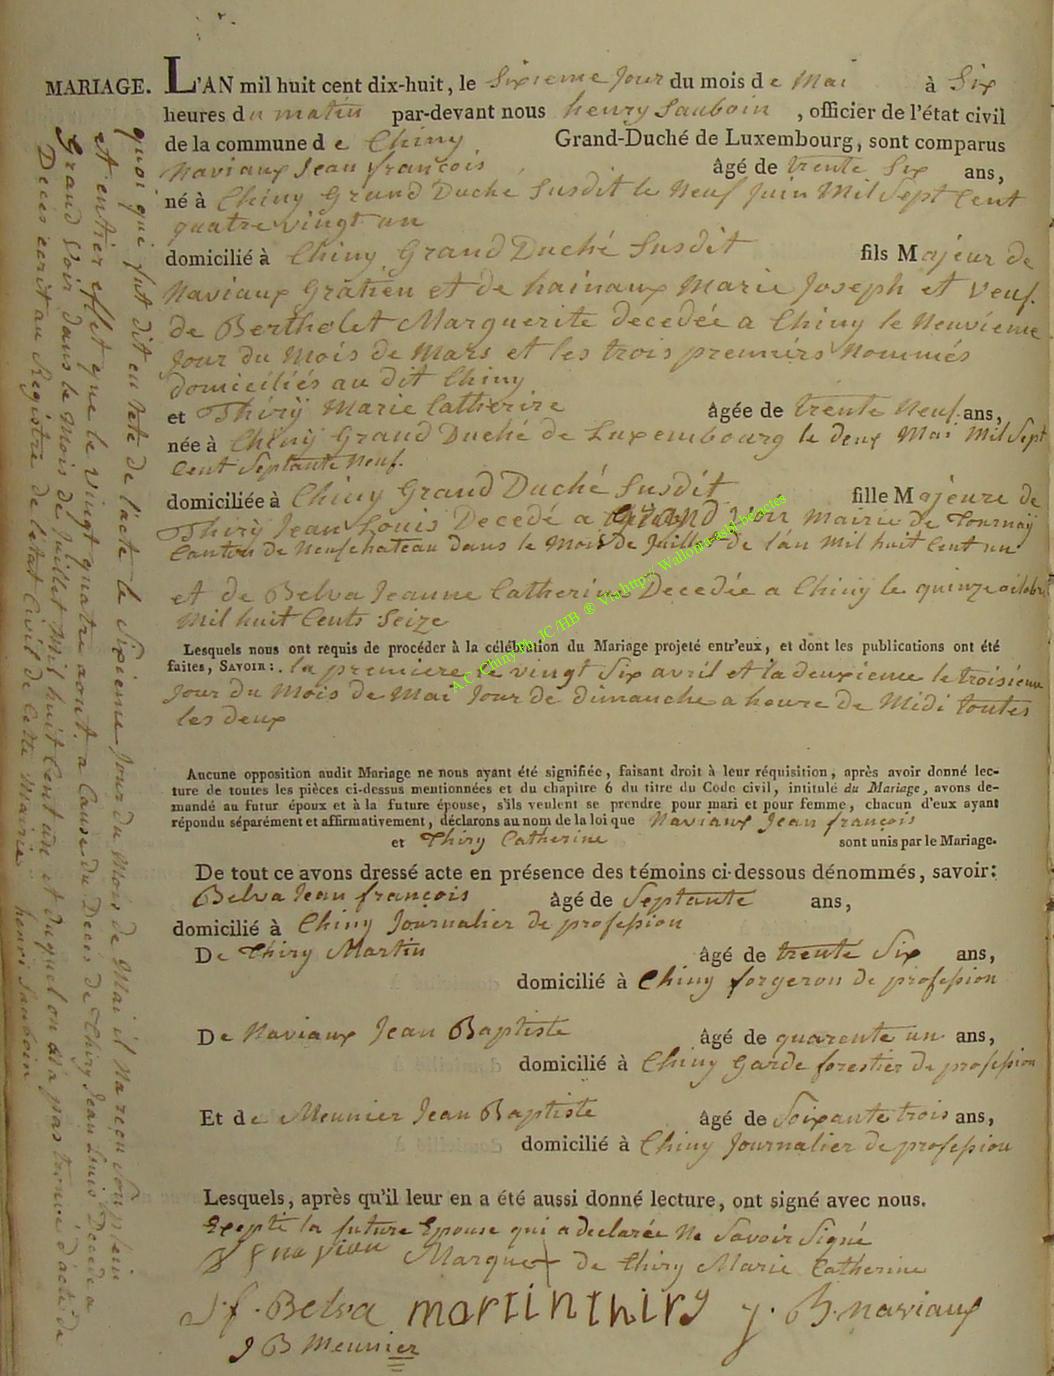 MARIAGE. L'AN mil huit cent dix-huit, le Sixieme Jour du mois de Mai à Six
heures du matin par-devant nous henry Sauboin , officier de l'état civil
de la commune de Chiny Grand-Duché de Luxembourg, sont comparus
Naviaux Jean françois , âgé de trente Six ans,
né à Chiny Grand Duché Susdit le Neuf Juin Mil Sept Cent
quatre vingt un
domicilié à Chiny Grand Duché Susdit fils Majeur de
Naviaux Gratien et de hainaux Marie Joseph et Veuf
de Berthelet Marguerite decedée a Chiny le Neuvieme
Jour du Mois de Mars et les trois premiers Nommés
domiciliés au dit Chiny
et Thirÿ Marie Catherine âgée de trente Neuf ans,
née à Chiny Grand Duché de Luxembourg le deux Mai Mil Sept
Cent Septante Neuf.
domiciliée à Chiny Grand Duché Susdit fille Majeure de
Thirÿ Jean Louis Decedé a Grand Voir Mairie de Tournaÿ
Canton de Neufchateau dans le Mois de Juillet de l'an Mil huit Cent un
et de Belva Jeanne Catherine Decedée a Chiny le quinze octobre
Mil huit Cents Seize
Lesquels nous ont requis de procéder à la célébration du Mariage projeté entr'eux, et dont les publications ont été
faites, SAVOIR : la premiere le vingt Six avril et la deuxieme le troisieme
Jour du Mois de Mai Jour de dimanche a heure de Midi toutes
les deux
Aucune opposition audit Mariage ne nous ayant été signifiée, faisant droit à leur réquisition, après avoir donné lec-
ture de toutes les pièces ci-dessus mentionnées et du chapitre 6 du titre du Code civil, intitulé du Mariage, avons de-
mandé au futur époux et à la future épouse, s'ils veulent se prendre pour mari et pour femme, chacun d'eux ayant
répondu séparément et affirmativement, déclarons au nom de la loi que Naviaux Jean françois
et Thiry Catherine sont unis par le Mariage.
De tout ce avons dressé acte en présence des témoins ci-dessous dénommés, savoir:
Belva Jean françois âgé de Septante ans,
domicilié à Chiny Journalier de profession
De Thiry Martin âgé de trente Six ans,
domicilié à Chiny forgeron de profession
De Naviaux Jean Baptiste âgé de quarente un ans,
domicilié à Chiny Garde forestier de profession
Et de Meunier Jean Baptiste âgé de Soixante trois ans,
domicilié à Chiny Journalier de profession
Lesquels, après qu'il leur en a été aussi donné lecture, ont signé avec nous.
Exepté la future Epouse qui a declarée Ne Savoir Signé
Marque de thiry Marie Catherine
J f . Belva martin thiry J . B . naviaux
J B Meunier
quoi qui soit dit en tete de l'acte le Sixieme Jour du Mois de Mai il Na reçu Son plein
et entier effet que le vingt quatre aout a Cause du Deces de thiry Jean Louis Decedé a
Grand Voir dans le Mois de Juillet Mil huit Cent un et duquel on n'a pas tenue d'acte de
Deces ecrit au Registre de l'etat Civil de Cette Mairie henri Sauboin